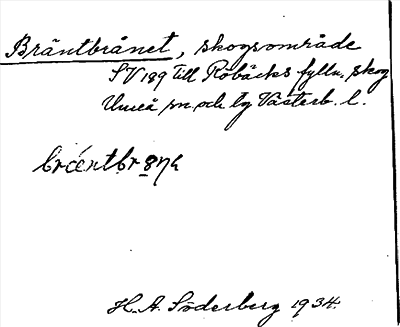 Bräntbrånet, skogsområde
SV 189 till Röbäcks fylln. skog
Umeå sn. och tg Västerb. l.
H. A. Söderberg 1934.